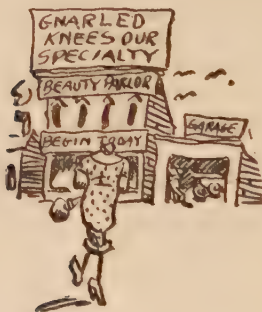 GNARLED
KNEES OUR
SPECIALTY
BEAUTY PARLOR
BEGIN TODAY
GARAGE